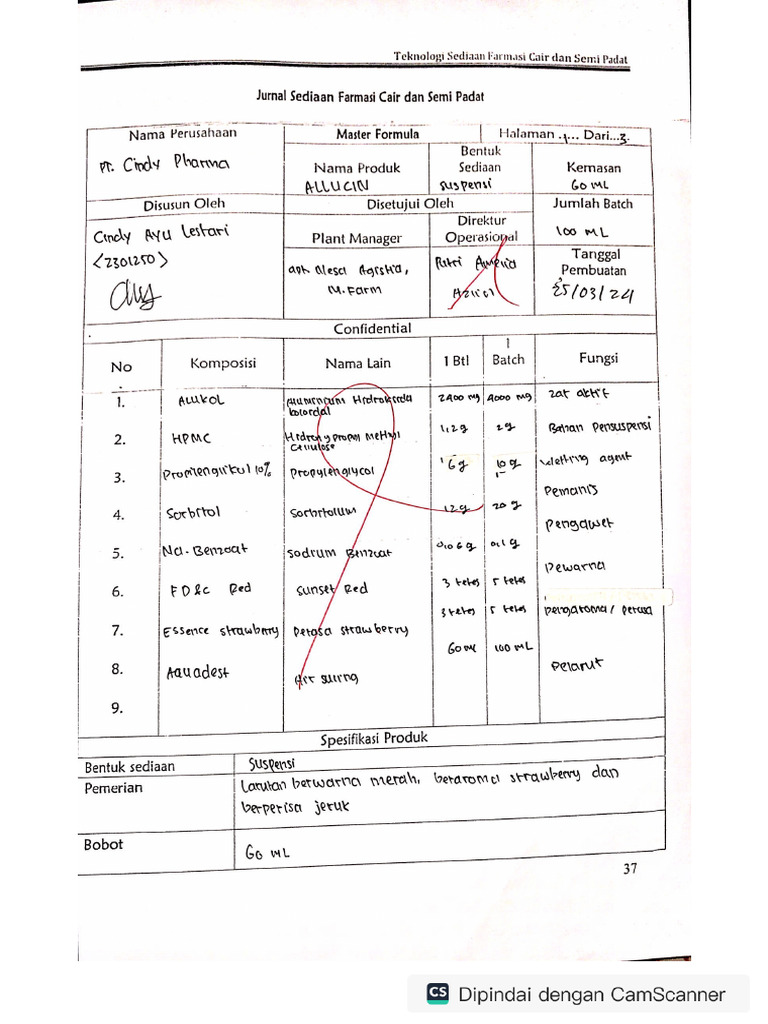 Teknologi Sediaan Farmasi Cair dan Semi Padat
Jurnal Sediaan Farmasi Cair dan Semi Padat
Nama Perusahaan
Master Formula
Halaman .1... Dari...3.
PT. Cindy Pharma
Nama Produk
ALLUCIN
Bentuk
Sediaan
Suspensi
Kemasan
60 ML
Disusun Oleh
Disetujui Oleh
Jumlah Batch
Cindy Ayu Lestari
(2301250)
Plant Manager
Direktur
Operasional
100 ML
apt Olesa Agistia,
M.Farm
Putri Amelia
Azlia
Tanggal
Pembuatan
25/03/24
Confidential
No Komposisi Nama Lain 1 Btl 1 Batch Fungsi
1. Alukol Alumunium Hidroksida Koloidal 2400 mg 4000 mg Zat aktif
2. HPMC Hidroxypropyl Methyl Cellulose 1,2 g 2 g Bahan Pensuspensi
3. Propilenglikol 10% Propylenglycol 6 g 10 g Wetting agent
4. Sorbitol Sorbitolum 12 g 20 g Pemanis
5. Na-Benzoat Sodium Benzoat 0,06 g 0,1 g Pengawet
6. FD&C Red Sunset Red 3 tetes 5 tetes Pewarna
7. Essence strawberry Perasa strawberry 3 tetes 5 tetes Pengaroma / Perasa
8. Aquadest Air suling 60 ml 100 ML Pelarut
9.
Spesifikasi Produk
Bentuk sediaan Suspensi
Pemerian Larutan berwarna merah, beraroma strawberry dan
berperisa jeruk
Bobot 60 ML
37
CS Dipindai dengan CamScanner